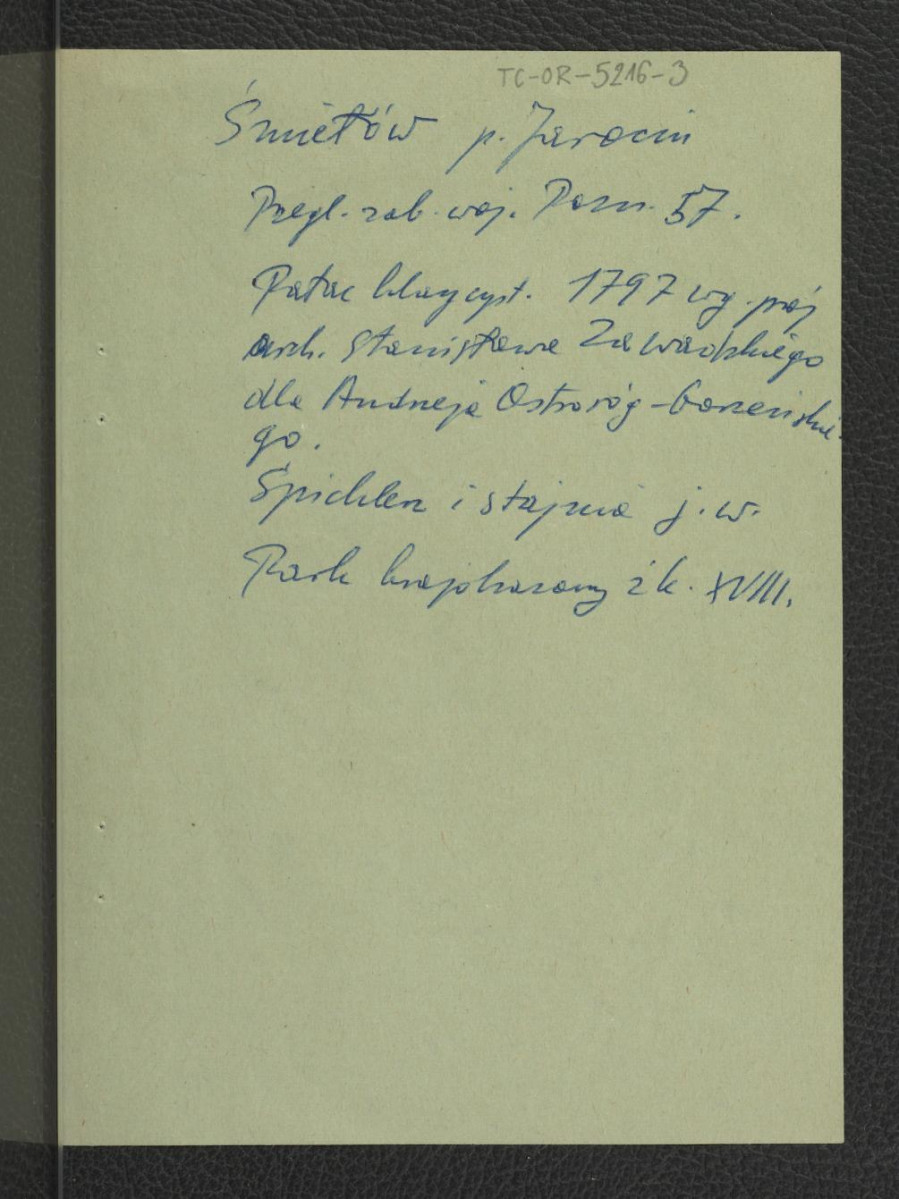 TC-OR-5216-3
Śmiełów p. Jarocin
Przegl. zab. woj. Pozn. 57.
Pałac klasycyst. 1797 wg. proj
arch. Stanisława Zawadzkiego
dla Andrzeja Ostroróg-Gorzeńskie-
go.
Spichlerz i stajnia j.w.
Park krajobrazowy z k. XVIII.